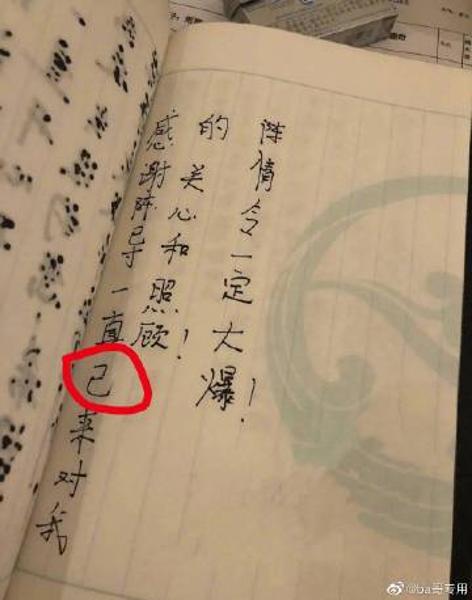 感谢陈导一直己来对我
的关心和照顾!
陈情令一定大爆!
@ba哥专用